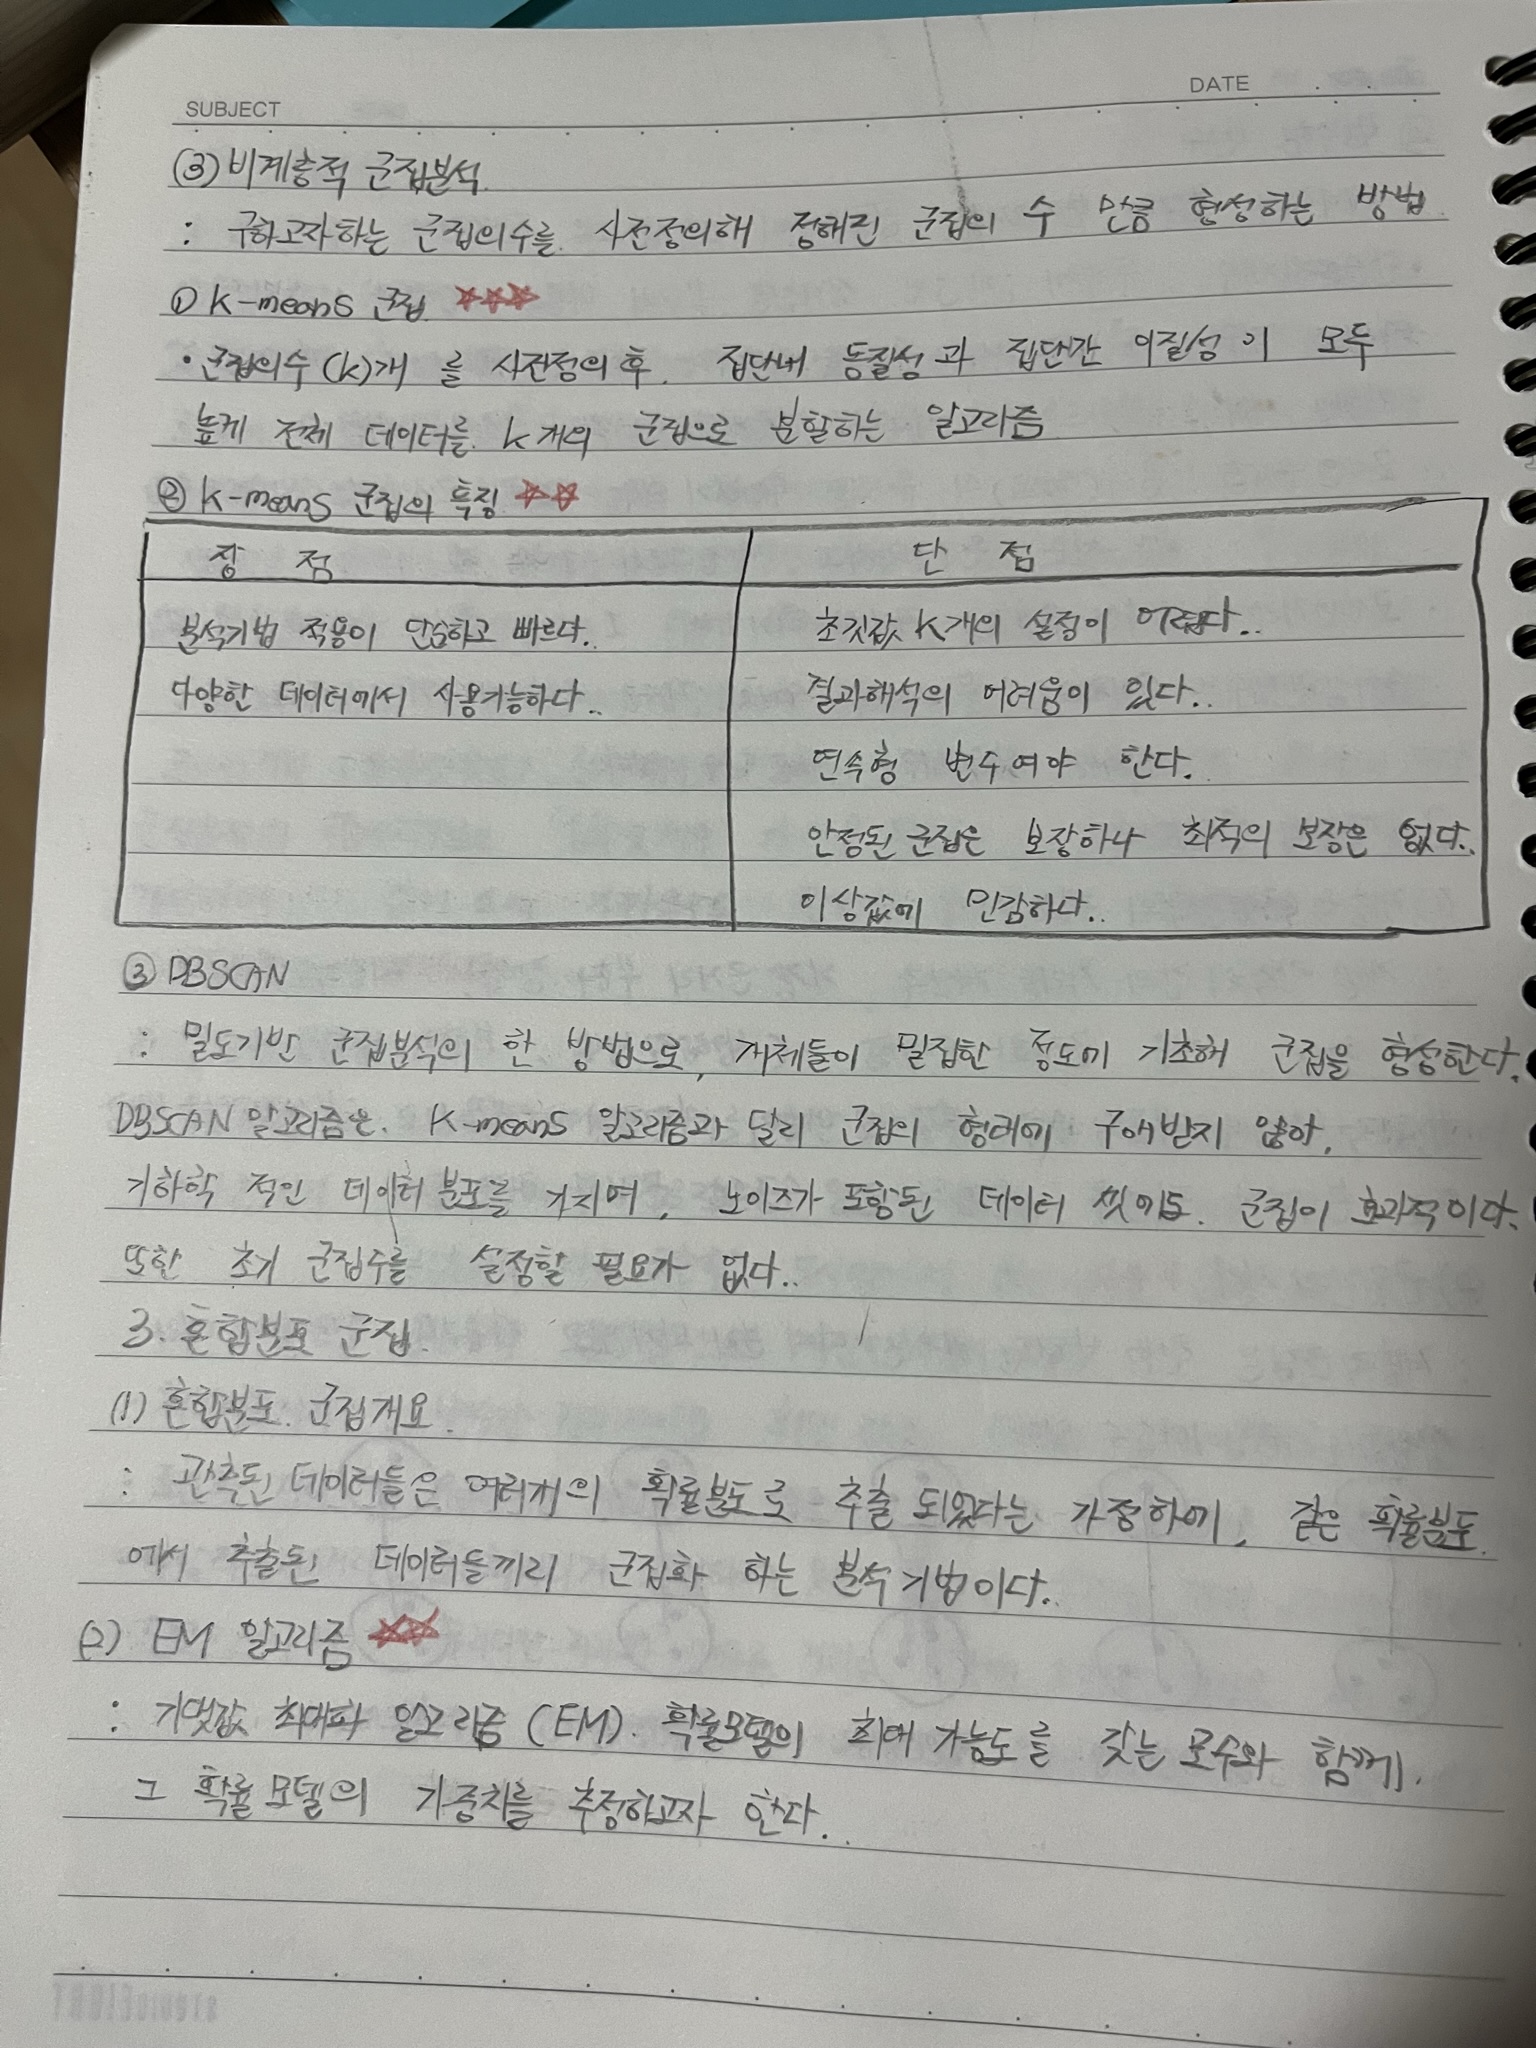 SUBJECT
DATE
(3) 비계층적 군집분석.
: 구하고자하는 군집의수를 사전정의해 정해진 군집의 수 만큼 형성하는 방법.
① K-means 군집 ☆☆☆
• 군집의수(k)개 를 사전정의 후. 집단내 동질성과 집단간 이질성이 모두
높게 전체 데이터를 k개의 군집으로 분할하는 알고리즘
② K-means 군집의 특징 ☆☆
장 점
단 점
분석기법 적용이 단순하고 빠르다..
초깃값 K개의 설정이 어렵다..
다양한 데이터에서 사용가능하다..
결과해석의 어려움이 있다..
연속형 변수여야 한다.
안정된 군집은 보장하나 최적의 보장은 없다..
이상값에 민감하다..
③ DBSCAN
: 밀도기반 군집분석의 한 방법으로, 개체들이 밀집한 정도에 기초해 군집을 형성한다.
DBSCAN 알고리즘은. K-means 알고리즘과 달리 군집의 형태에 구애받지 않아,
기하학 적인 데이터 분포를 가지며, 노이즈가 포함된 데이터 셋에도. 군집이 효과적이다.
또한 초기 군집수를 설정할 필요가 없다..
3. 혼합분포 군집.
(1) 혼합분포. 군집개요.
: 관측된 데이터들은 여러개의 확률분포로 추출 되었다는 가정하에, 같은 확률분포.
에서 추출된 데이터들끼리 군집화 하는 분석 기법이다..
(2) EM 알고리즘 ☆☆
: 기댓값 최대화 알고리즘 (EM). 확률모델의 최대 가능도를 갖는 모수와 함께.
그 확률모델의 가중치를 추정하고자 한다..